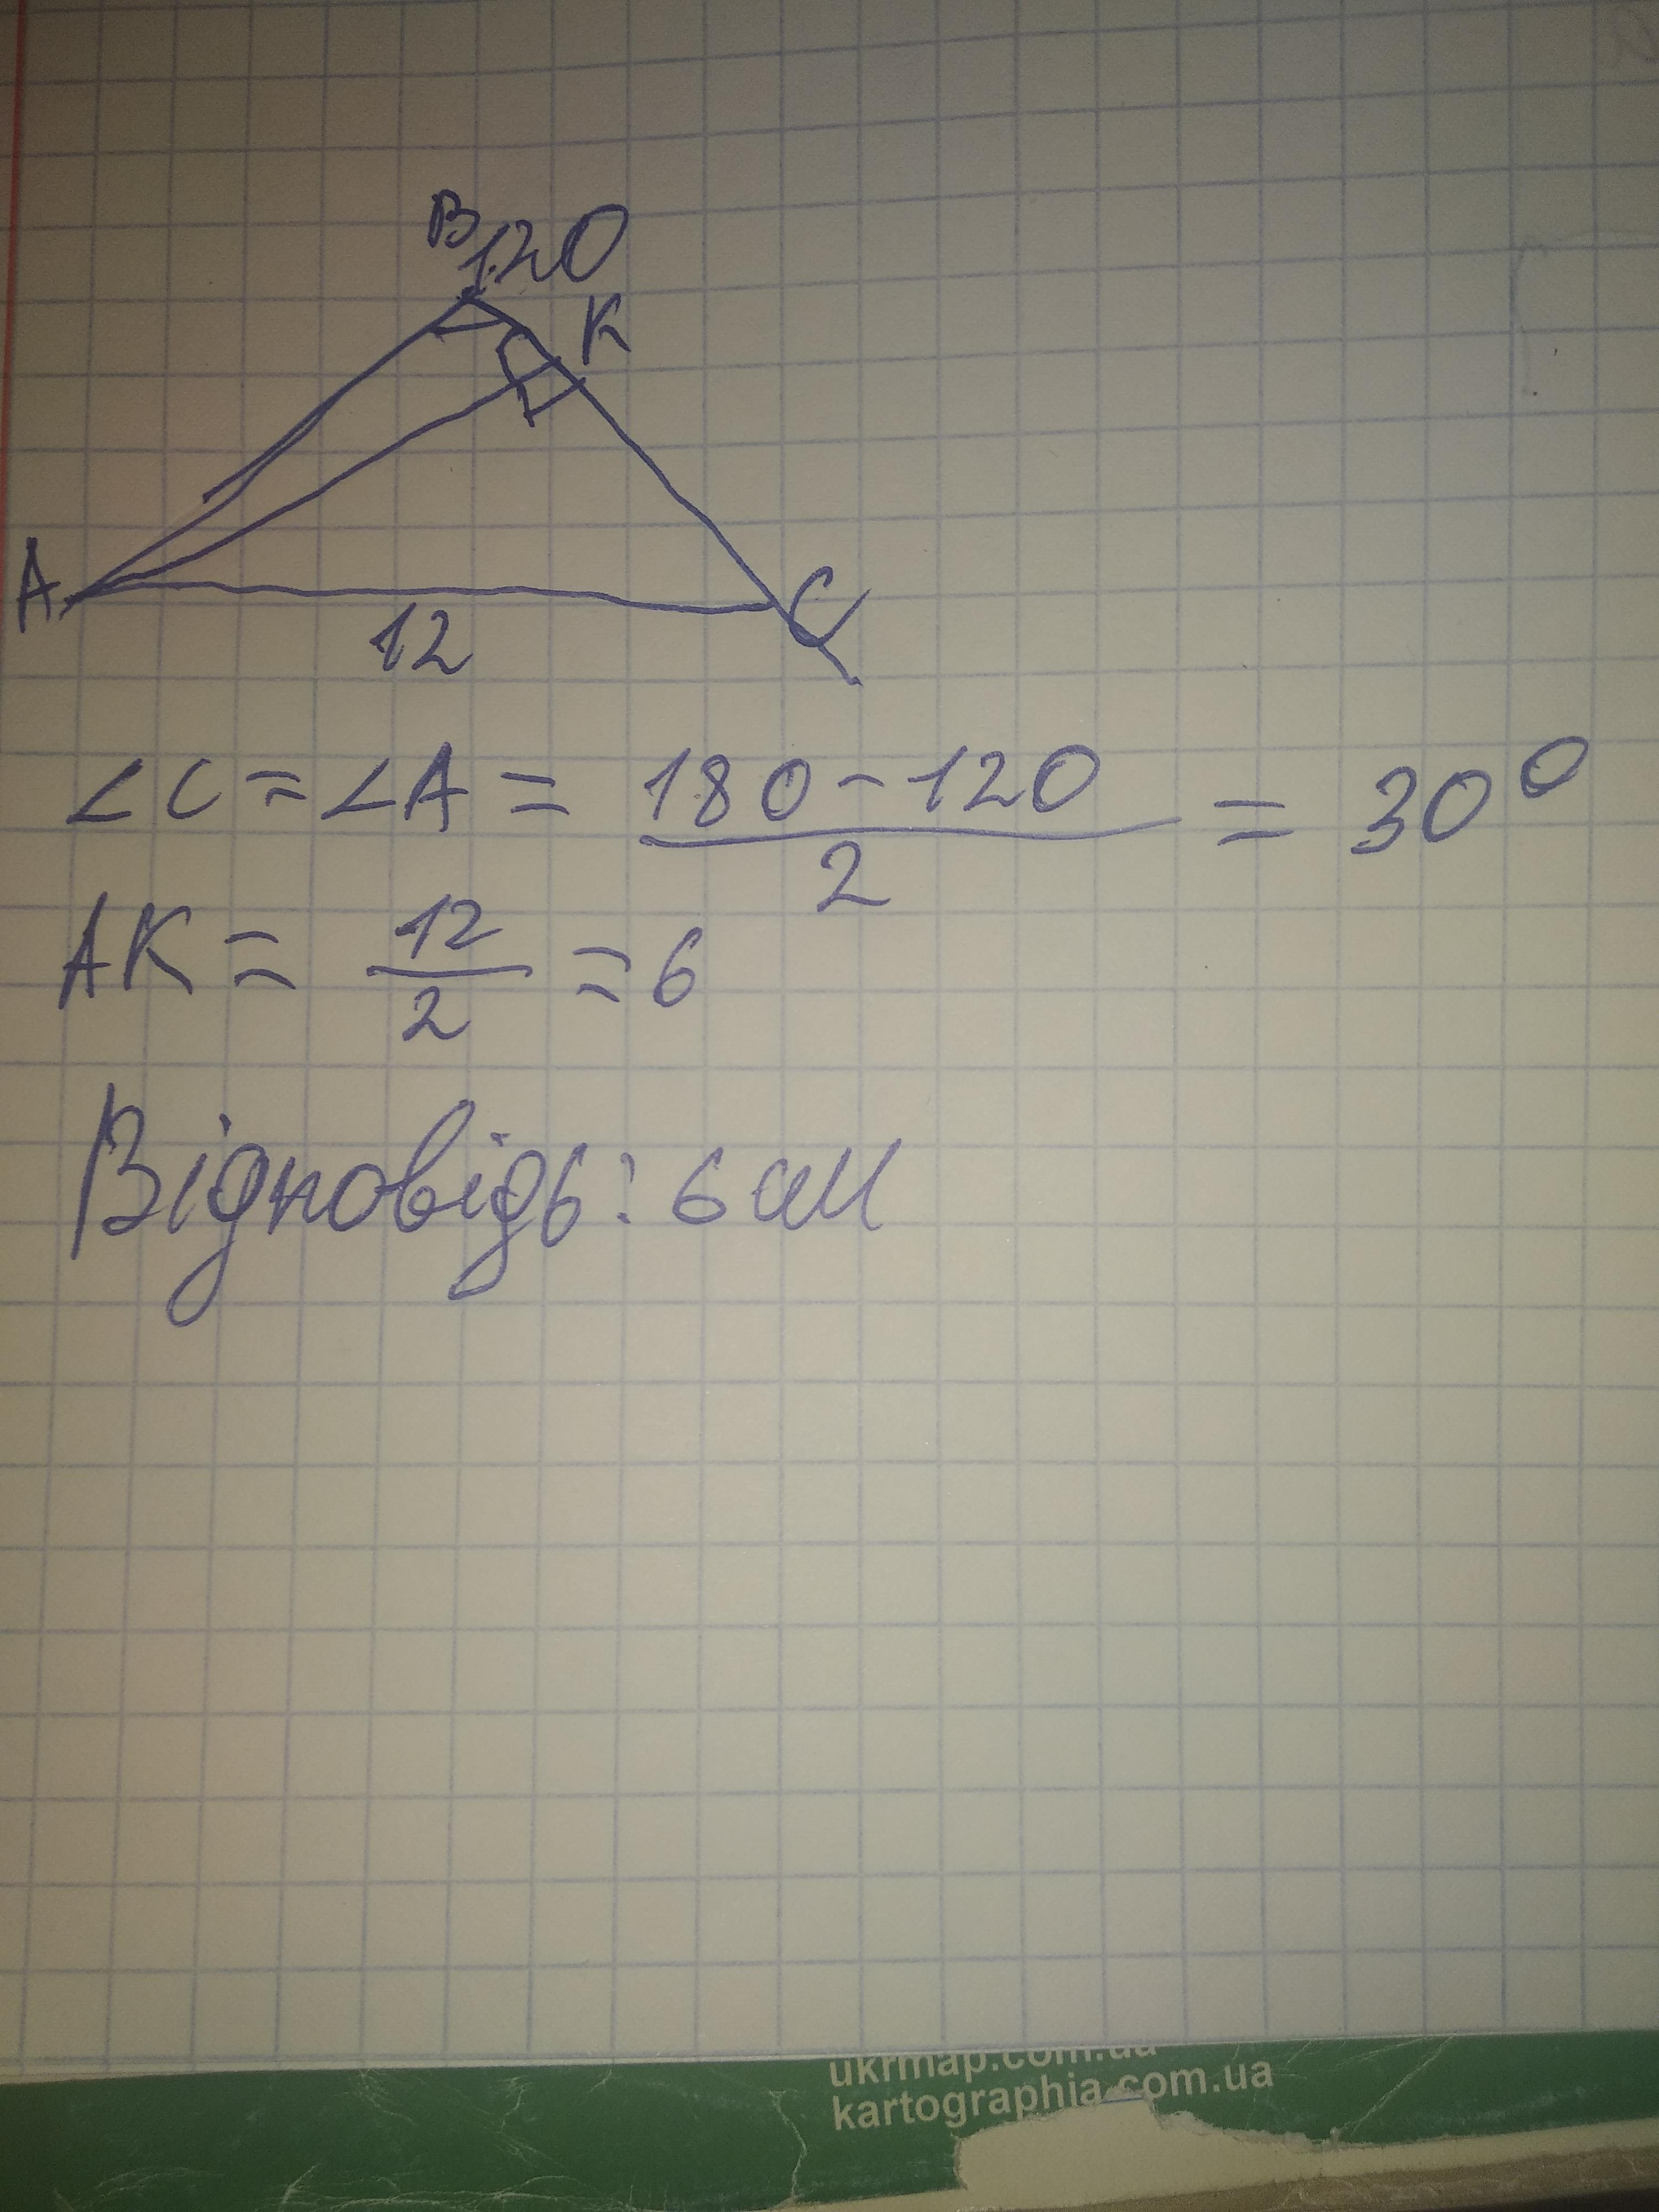 B 120
K
A
C
12
∠C = ∠A = (180 - 120)/2 = 30°
AK = 12/2 = 6
Відповідь: 6 см
ukrmap.com.ua
kartographia.com.ua